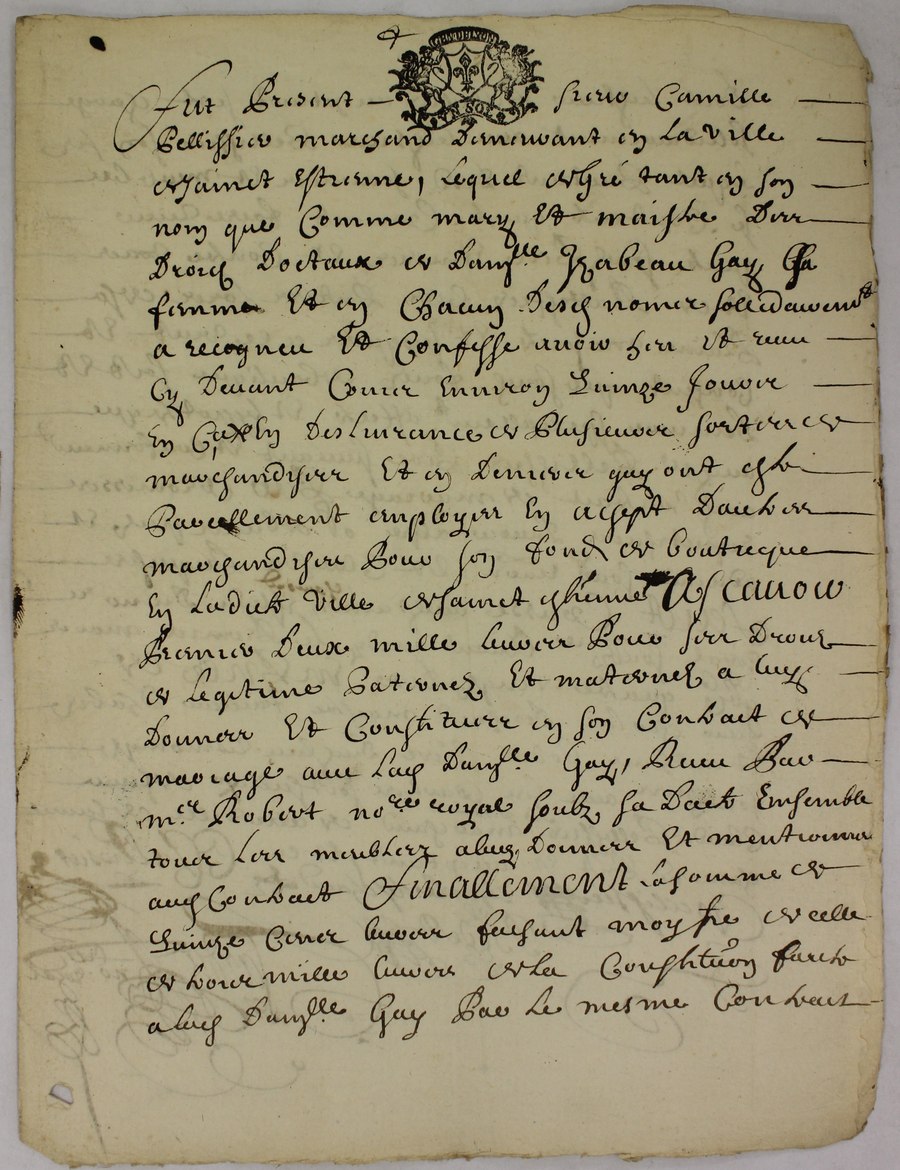 GEN DE LYON
UN SOL
Fut Present sieur Camille
Pellissier marchand Demeurant en La ville
de sainct Estienne, Lequel de gré tant en son
nom que Comme mary Et maistre Des
Droictz Doctaux de Dam.lle Izabeau Gay sa
femme Et en Chacun Desd nomes sollidairem.t
a recogneu Et Confesse avoir heu Et receu
Cy Devant Comer Environ Quinze Jours
En Ça En Deslivrance de Plusieurs sortes de
marchandises Et en Deniers quy ont esté
Parellement employes En achept Dautres
marchandises Pour son fond de boutieque
En Ladicte ville de sainct Estienne Ascavoir
Premier Deux mille livres Pour ses Droictz
de Legitime Paternez Et maternez a luy
Donnes Et Constitues en son Contract de
mariage avec Lad Dam.lle Gay, Receu Par
m.re Robert no.re royal soubz sa Datte Ensemble
tous Les meubles a luy Donnes Et mentionnes
aud Contract Finallement La somme de
Quinze Cens livres faisant moytie de celle
de trois mille livres de la Constituon faicte
a lad Dam.lle Gay Par Le mesme Contract